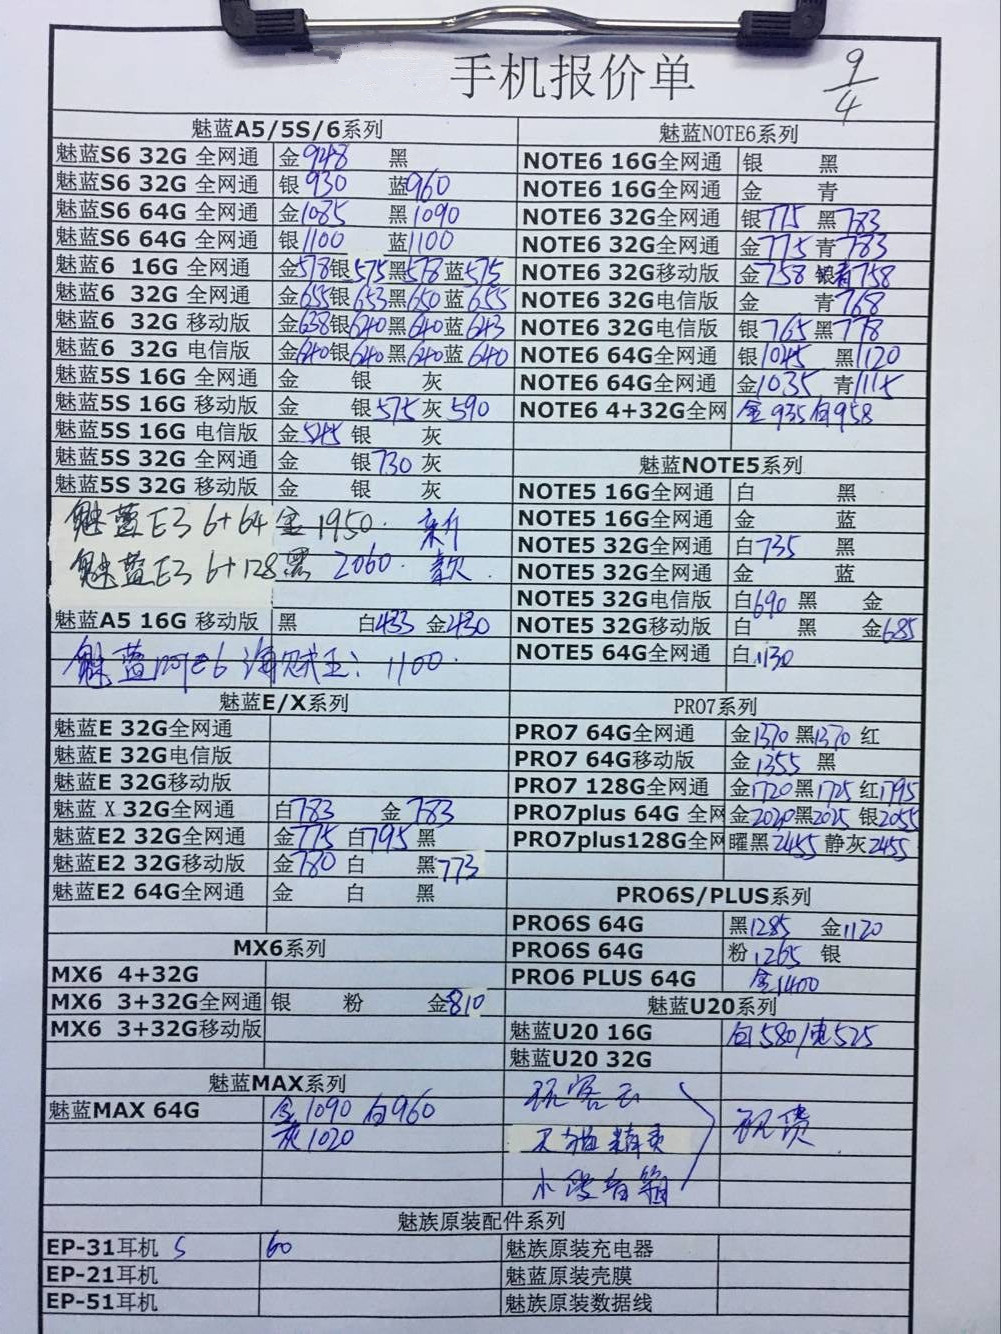 手机报价单
9/4
魅蓝A5/5S/6系列
魅蓝S6 32G 全网通 金948 黑
魅蓝S6 32G 全网通 银930 蓝960
魅蓝S6 64G 全网通 金1085 黑1090
魅蓝S6 64G 全网通 银1100 蓝1100
魅蓝6 16G 全网通 金578银575黑578蓝575
魅蓝6 32G 全网通 金655银653黑650蓝655
魅蓝6 32G 移动版 金638银640黑640蓝643
魅蓝6 32G 电信版 金640银640黑640蓝640
魅蓝5S 16G 全网通 金 银 灰
魅蓝5S 16G 移动版 金 银575灰590
魅蓝5S 16G 电信版 金545银 灰
魅蓝5S 32G 全网通 金 银730灰
魅蓝5S 32G 移动版 金 银 灰
魅蓝E3 6+64 金 1950. 新
魅蓝E3 6+128黑 2060. 款.
魅蓝A5 16G 移动版 黑 白433 金430
魅蓝note6 海贼王: 1100.
魅蓝E/X系列
魅蓝E 32G全网通
魅蓝E 32G电信版
魅蓝E 32G移动版
魅蓝 X 32G全网通 白783 金783
魅蓝E2 32G全网通 金775 白795黑
魅蓝E2 32G移动版 金780 白 黑773
魅蓝E2 64G全网通 金 白 黑
MX6系列
MX6 4+32G
MX6 3+32G全网通 银 粉 金810
MX6 3+32G移动版
魅蓝MAX系列
魅蓝MAX 64G 金1090 白960
灰1020
魅蓝NOTE6系列
NOTE6 16G全网通 银 黑
NOTE6 16G全网通 金 青
NOTE6 32G全网通 银775 黑783
NOTE6 32G全网通 金775 青783
NOTE6 32G移动版 金758 青758
NOTE6 32G电信版 金 青768
NOTE6 32G电信版 银765黑778
NOTE6 64G全网通 银1045 黑1120
NOTE6 64G全网通 金1035 青1115
NOTE6 4+32G全网 金935白958
魅蓝NOTE5系列
NOTE5 16G全网通 白 黑
NOTE5 16G全网通 金 蓝
NOTE5 32G全网通 白735 黑
NOTE5 32G全网通 金 蓝
NOTE5 32G电信版 白690 黑 金
NOTE5 32G移动版 白 黑 金685
NOTE5 64G全网通 白1130
PRO7系列
PRO7 64G全网通 金1370黑1370 红
PRO7 64G移动版 金1355 黑
PRO7 128G全网通 金1720黑1725 红1795
PRO7plus 64G 全网 金2020黑2025 银2055
PRO7plus128G全网 曜黑2455 静灰2455
PRO6S/PLUS系列
PRO6S 64G 黑1285 金1120
PRO6S 64G 粉1265 银
PRO6 PLUS 64G 金1400
魅蓝U20系列
魅蓝U20 16G 白580/电525
魅蓝U20 32G
玩客云
天猫精灵
音箱
魅族原装配件系列
EP-31耳机 S 60 魅族原装充电器
EP-21耳机 魅蓝原装壳膜
EP-51耳机 魅族原装数据线